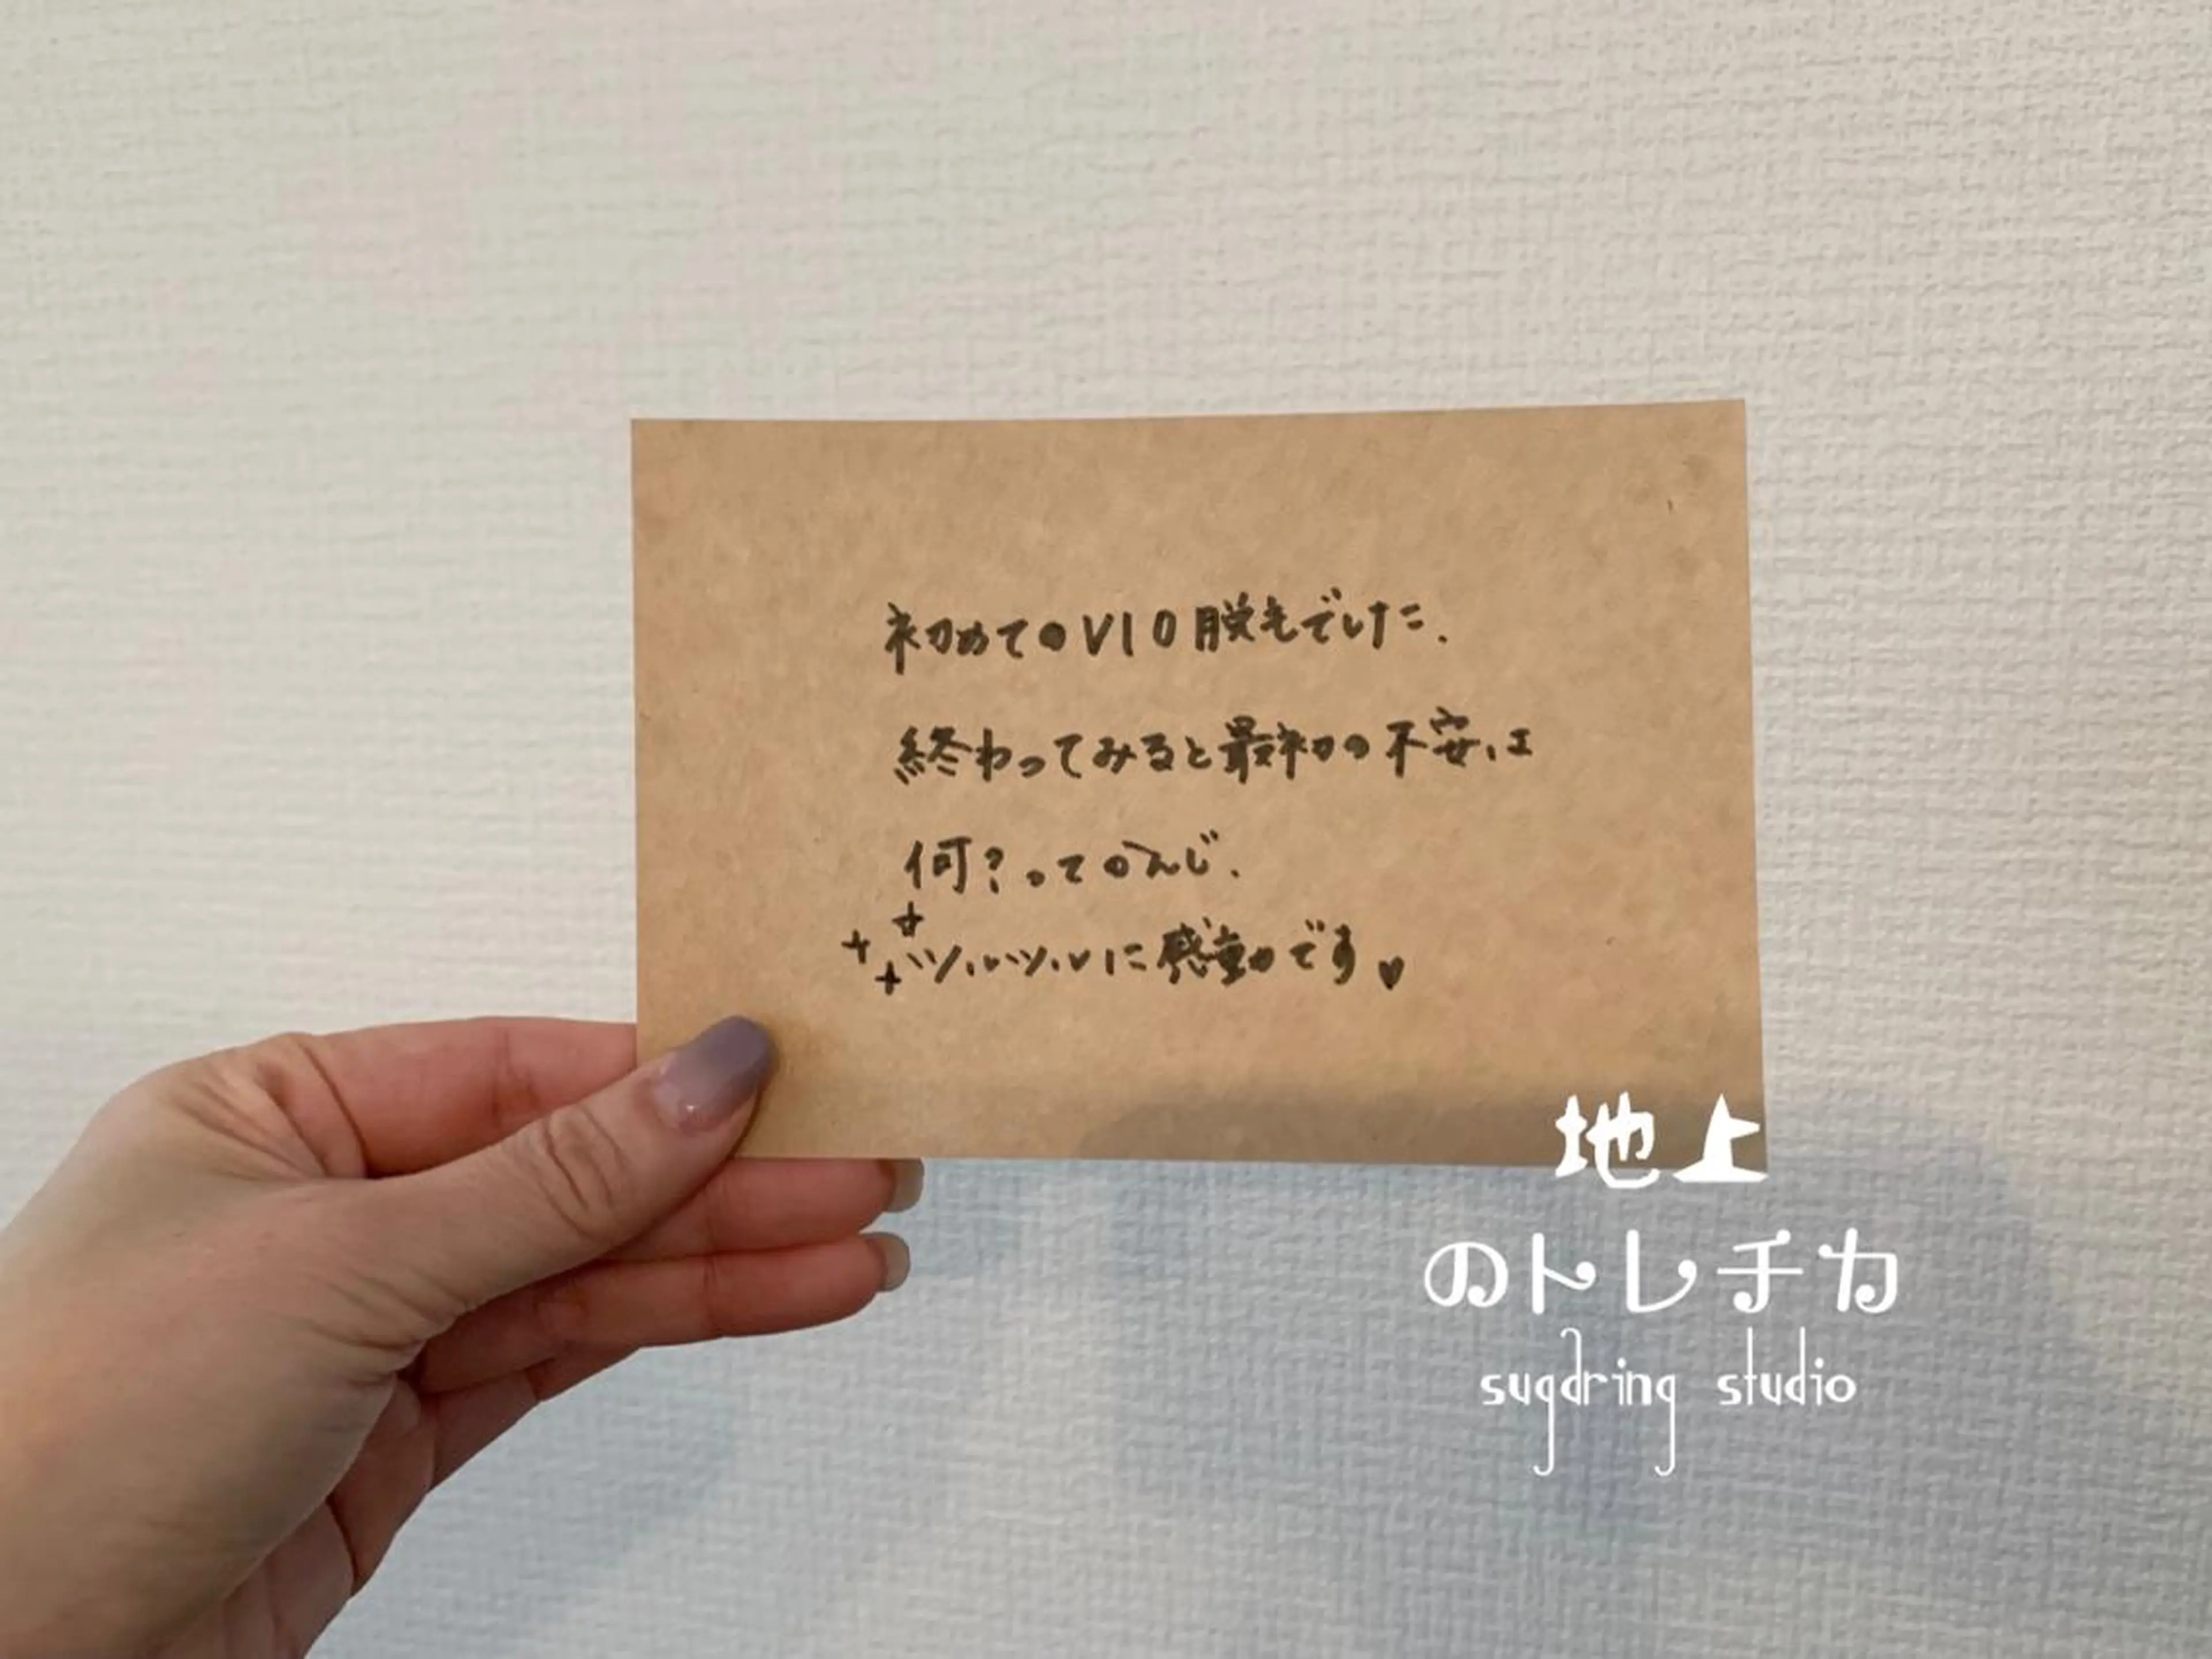 初めてのVIO脱毛でした.
終わってみると最初の不安は
何?ってかんじ.
ツルツルに感動です♥
地上
のトレチカ
sugaring studio